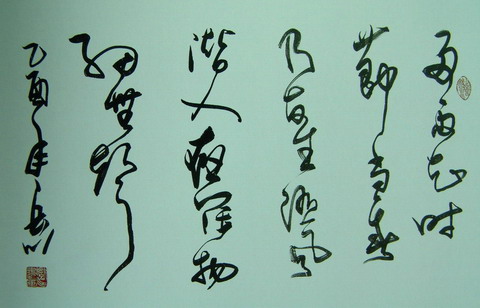 好雨知時
節當春
乃發生隨風
潛入夜潤物
細無聲
乙酉年